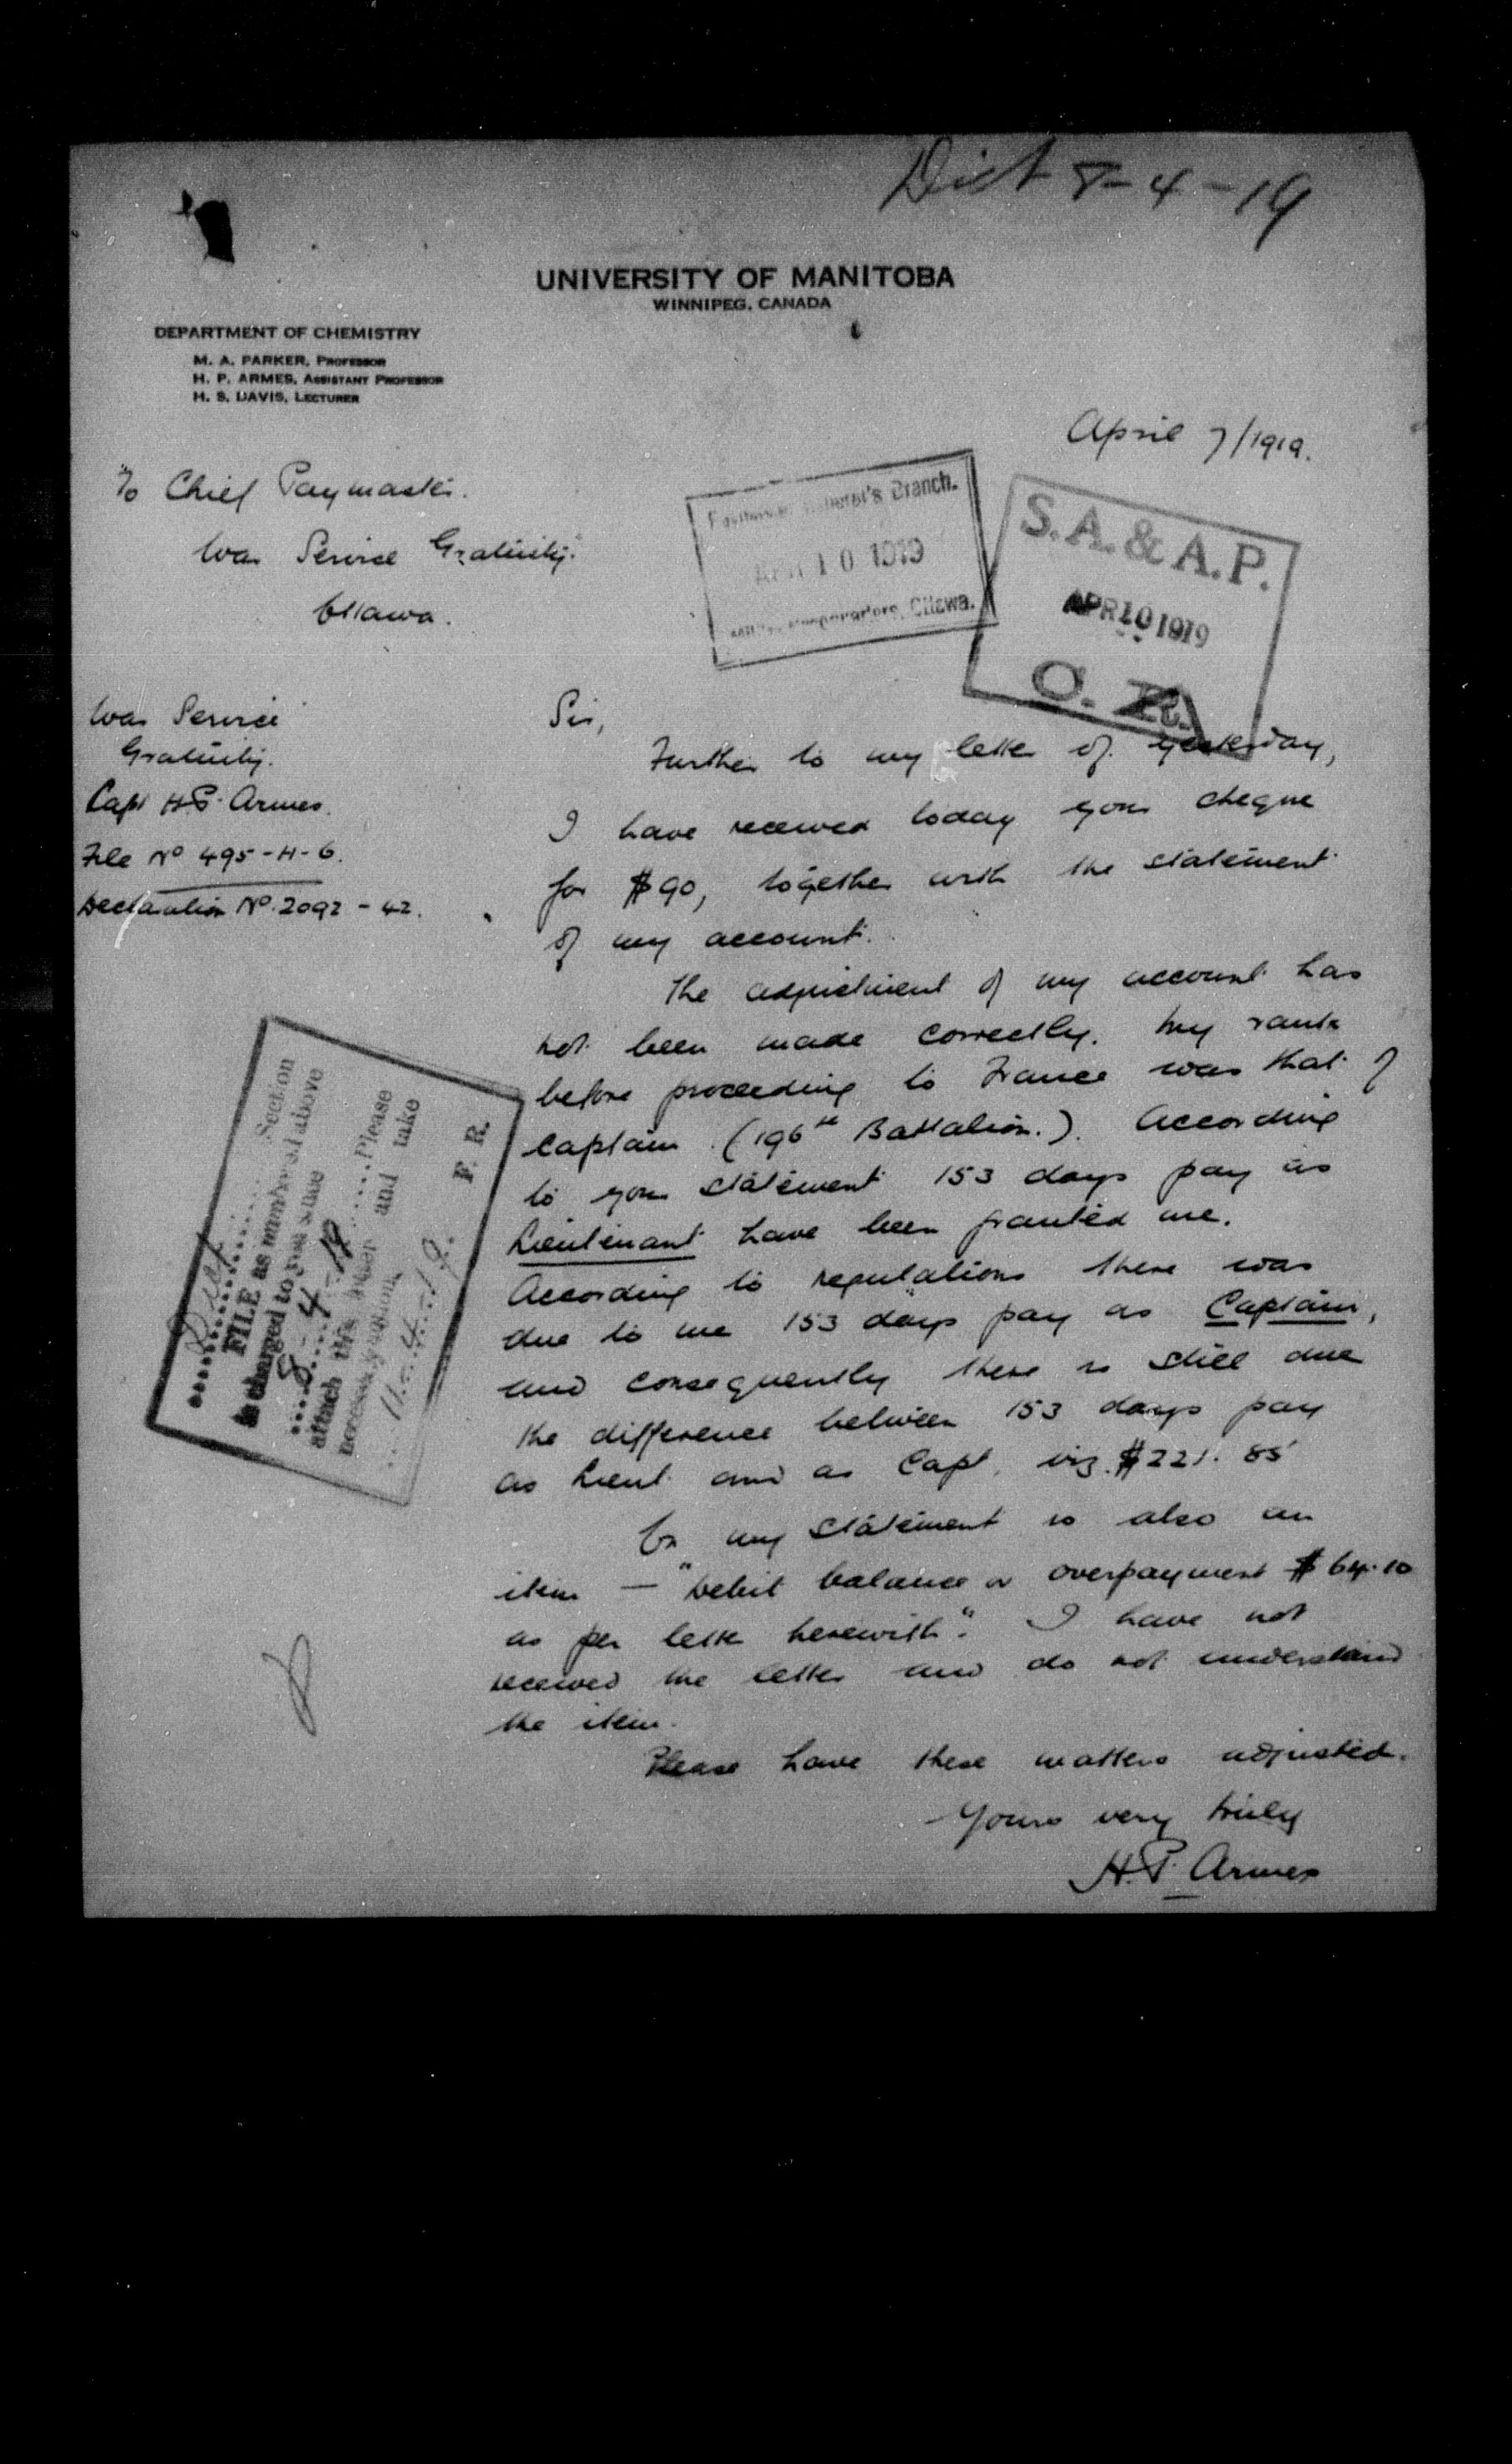 Dist 8-4-19
UNIVERSITY OF MANITOBA
WINNIPEG, CANADA
DEPARTMENT OF CHEMISTRY
M. A. PARKER, PROFESSOR
H. P. ARMES, ASSISTANT PROFESSOR
H. S. DAVIS, LECTURER
April 7/1919.
To Chief Paymaster.
War Service Gratuity.
Ottawa.
General's Branch.
APR 10 1919
Ottawa.
S.A. & A.P.
APR 10 1919
C. R.
War Service
Gratuity.
Capt H.P. Armes.
File No 495-H-6.
Declaration No. 2092-42.
Sir,
Further to my letter of yesterday,
I have received today your cheque
for $90, together with the statement
of my account.
The adjustment of my account has
not been made correctly. My rank
before proceeding to France was that of
Captain (196th Battalion.). According
to your statement 153 days pay as
Lieutenant have been granted me.
According to regulations there was
due to me 153 days pay as Captain,
and consequently there is still due
the difference between 153 days pay
as Lieut. and as Capt. viz. $221.85
On my statement is also an
item — "Debit balance or overpayment $64.10
as per letter herewith". I have not
received the letter and do not understand
the item.
Please have these matters adjusted.
Yours very truly
H.P. Armes
Section
FILE as numbered above
is charged to you since
8-4-19 Please
attach this paper and take
necessary action.
11-4-19.
F. R.